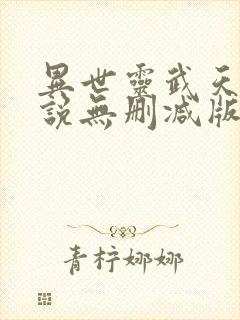 異世靈武天
說無刪減版
青柠娜娜